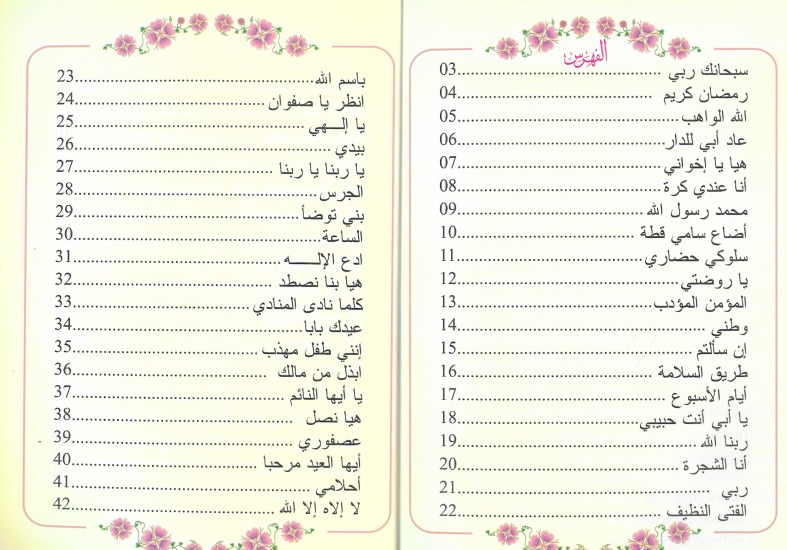 الفهرس
سبحانك ربي ........................03
رمضان كريم ........................04
الله الواهب........................05
عاد أبي للدار........................06
هيا يا إخواني........................07
أنا عندي كرة........................08
محمد رسول الله........................09
أضاع سامي قطة ........................10
سلوكي حضاري........................11
يا روضتي........................12
المؤمن المؤدب........................13
وطني ........................14
إن سألتم........................15
طريق السلامة ........................16
أيام الأسبوع ........................17
يا أبي أنت حبيبي........................18
ربنا الله ........................19
أنا الشجرة ........................20
ربي ........................21
الفتى النظيف ........................22
باسم الله........................23
انظر يا صفوان ........................24
يا إلـــهي ........................25
بيدي ........................26
يا ربنا يا ربنا ........................27
الجرس........................28
بني توضأ........................29
الساعة........................30
ادع الإلــــــه ........................31
هيا بنا نصطد ........................32
كلما نادى المنادي........................33
عيدك بابا........................34
إنني طفل مهذب ........................35
ابذل من مالك ........................36
يا أيها النائم ........................37
هيا نصل ........................38
عصفوري ........................39
أيها العيد مرحبا ........................40
أحلامي ........................41
لا إلاه إلا الله ........................42